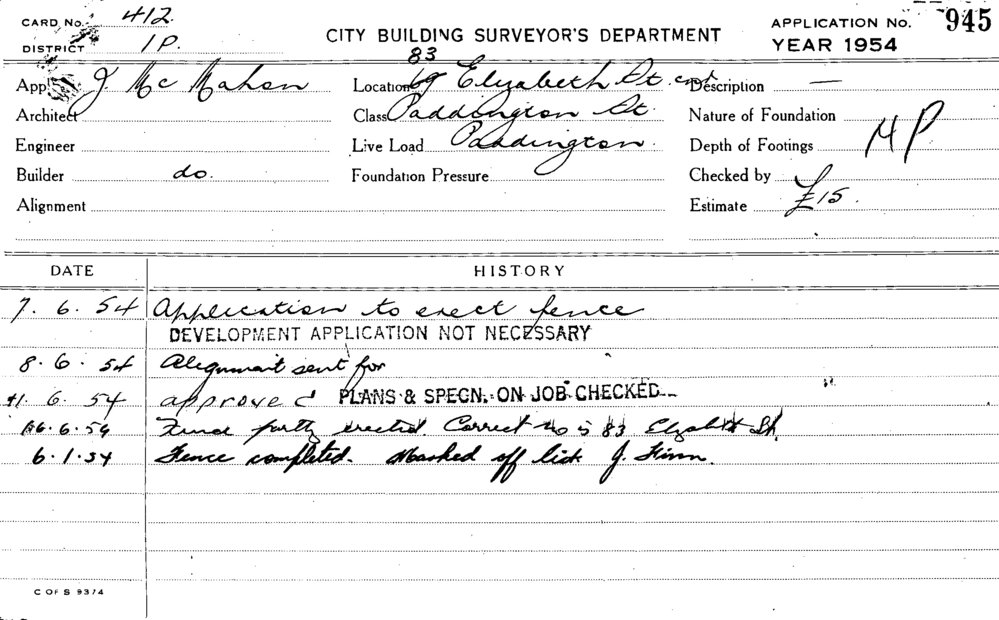 CARD No. 412
DISTRICT 1P.
CITY BUILDING SURVEYOR'S DEPARTMENT
APPLICATION No. 945
YEAR 1954
App J. Mc Mahon
Architect
Engineer
Builder do.
Alignment
83
Location 69 Elizabeth St. cnr
Class Paddington St
Live Load Paddington.
Foundation Pressure
Description —
Nature of Foundation
Depth of Footings
Checked by
Estimate £15.
DATE HISTORY
7. 6. 54 Application to erect fence
DEVELOPMENT APPLICATION NOT NECESSARY
8. 6. 54 Alignment sent for
6. 54 approved PLANS & SPECN. ON JOB CHECKED
6. 54 Fence partly erected. Correct no is 83 Elizabeth St.
6. 1. 54 Fence completed. Marked off list J. Finn.
C OF S 9374